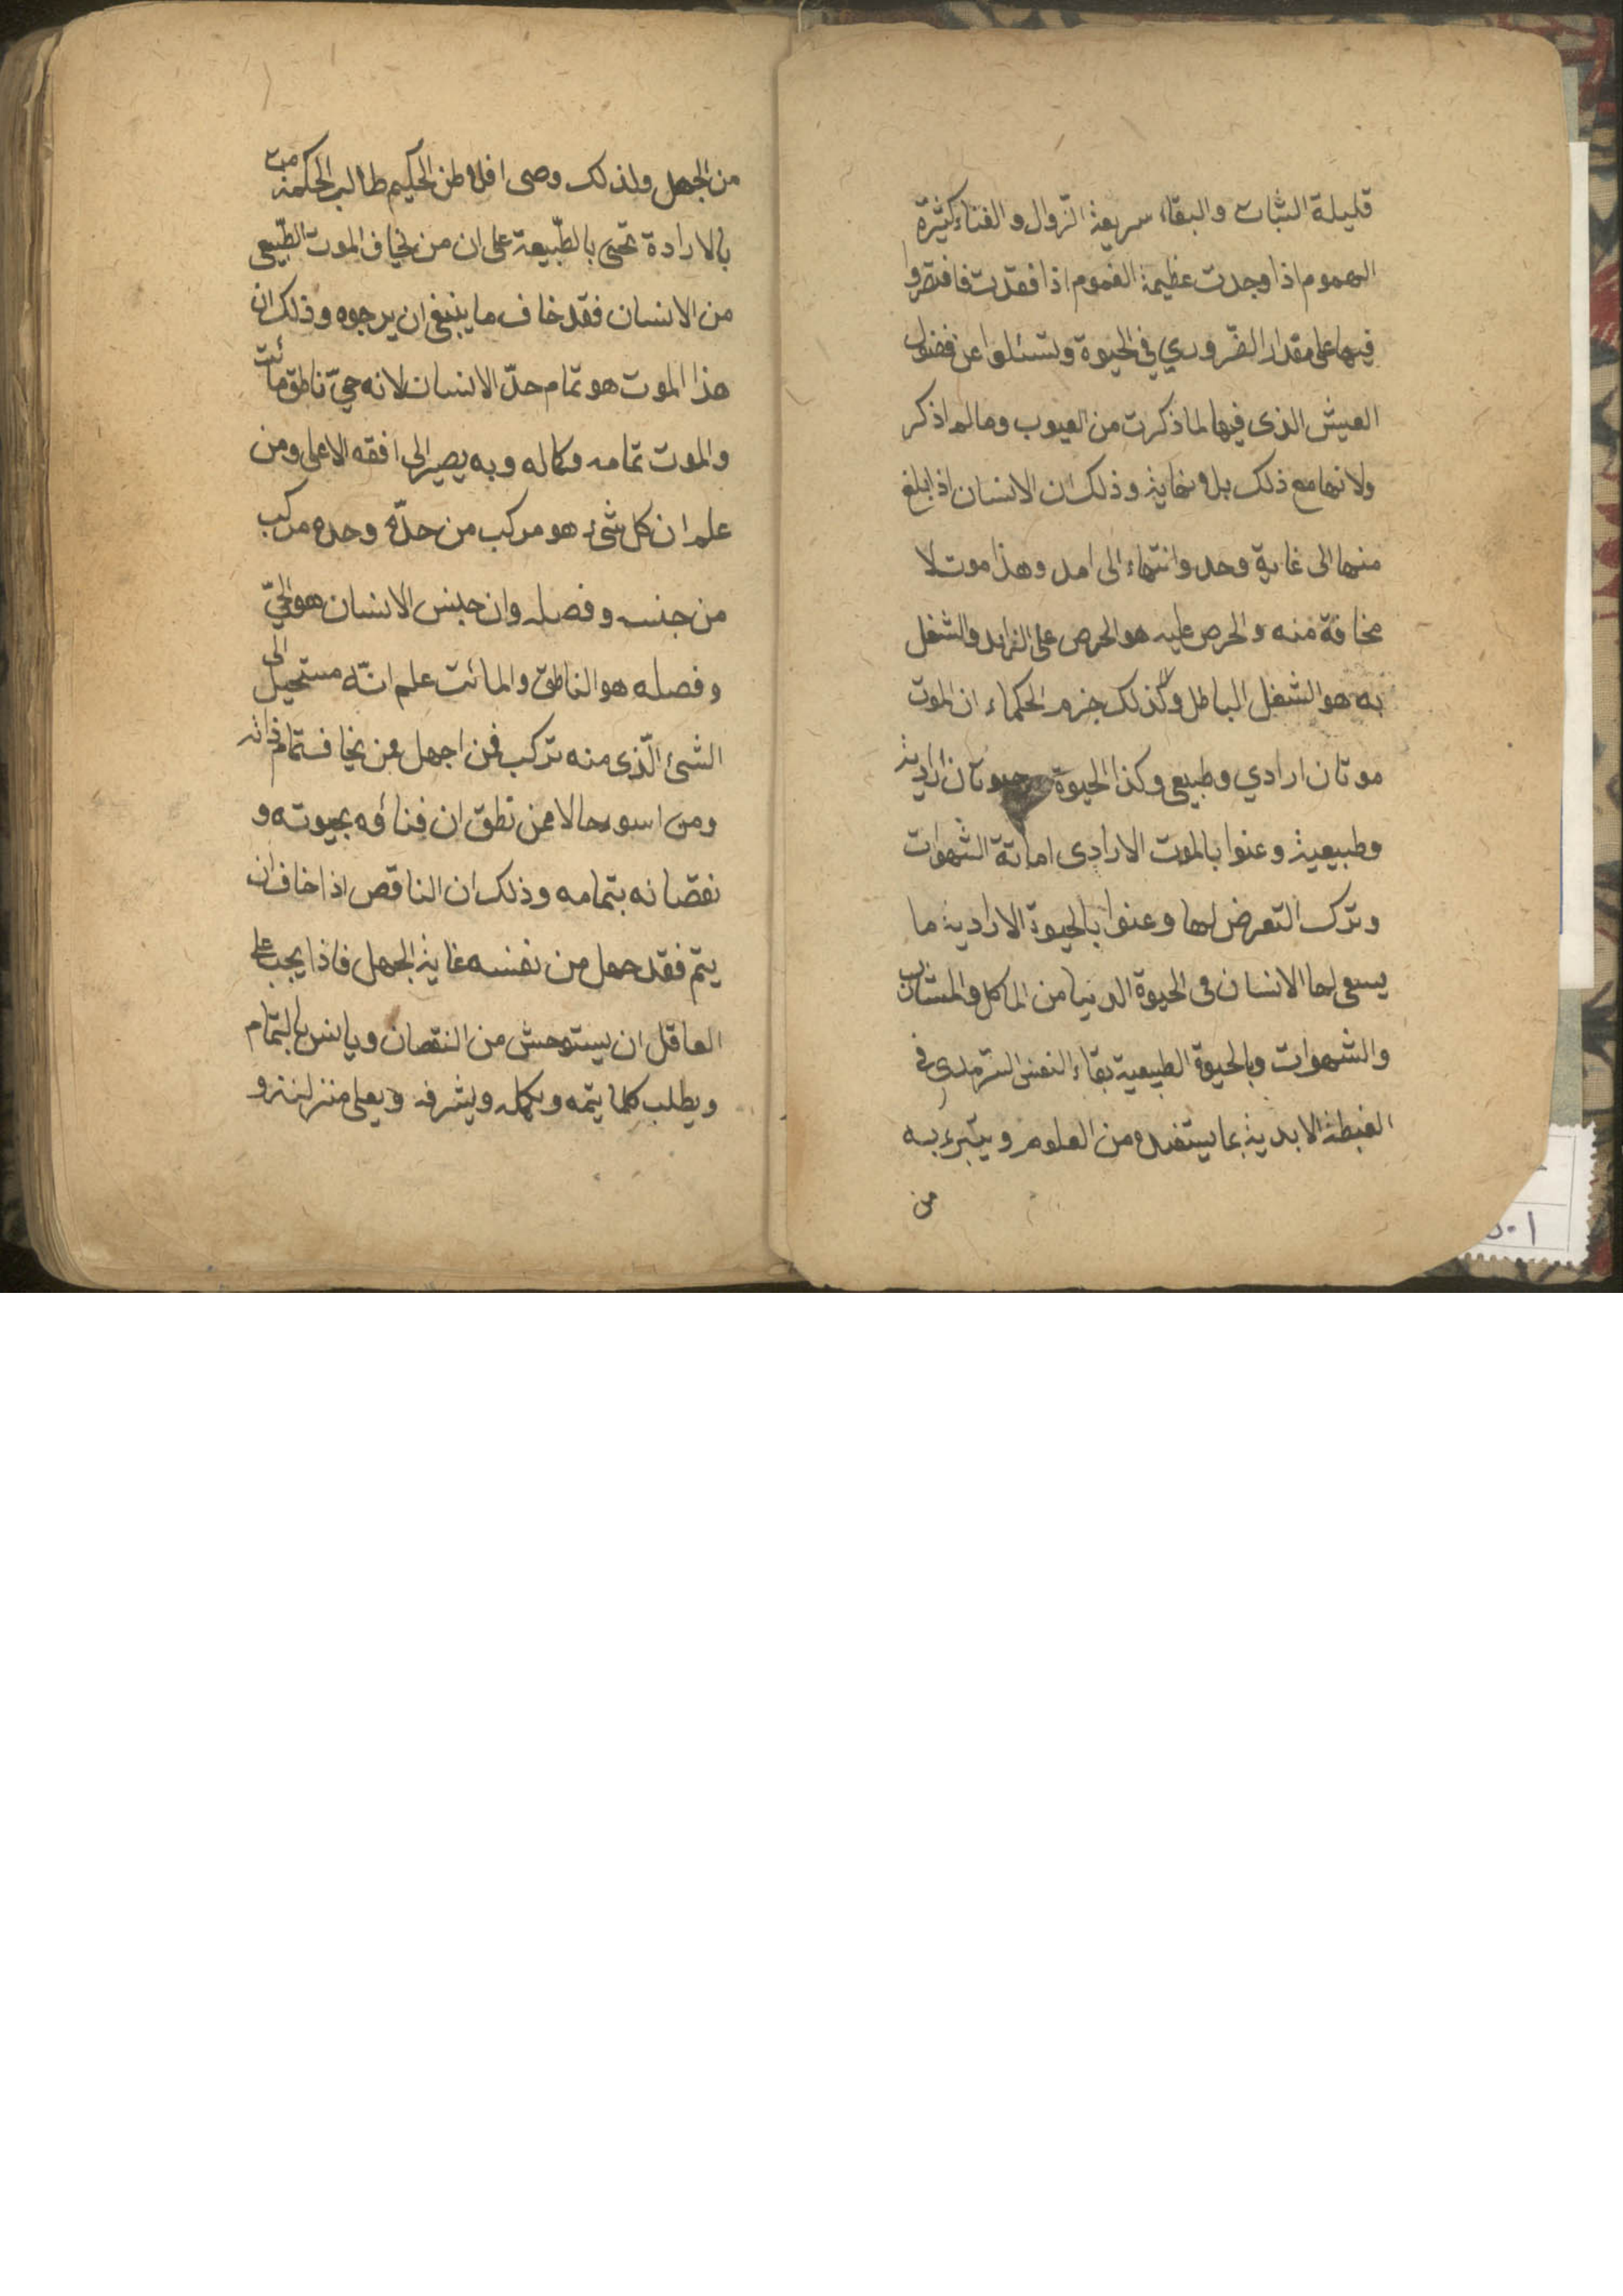 قليلة الثبات والبقاء سريعة الزّوال والفناء كثيرة
الهموم اذا وجدت عظيمة الغموم اذا فقدت فاقتصروا
فيها على مقدار الضّروري في الحيوة وتسئلوا عن فضول
العيش الذى فيها لما ذكرت من العيوب وما لم اذكر
ولانها مع ذلك بلا نهاية وذلك ان الانسان اذا بلغ
منها الى غاية وحد وانتهاء الى امد وهذا موت لا
مخافة منه والحرص عليه هو الحرص على الزايد والشغل
به هو الشغل الباطل وكذلك جزم الحكماء ان الموت
موتان ارادي وطبيعى وكذا الحيوة حيوتان ارادية
وطبيعية وعنوا بالموت الارادى اماتة الشهوات
وترك التعرض لها وعنوا بالحيوة الارادية ما
يسعى لها الانسان فى الحيوة الدنيا من الماكل والمشارب
والشهوات وبالحيوة الطبيعية بقاء النفس السّرمدى فى
الغبطة الابدية بما يستفده من العلوم ويتبرء به
من
من الجهل ولذلك وصى افلاطن الحكيم طالب الحكمة مت
بالارادة تحيى بالطّبيعة على ان من يخاف الموت الطّبيعى
من الانسان فقد خاف ما ينبغى ان يرجوه وذلك ان
هذا الموت هو تمام حدّ الانسان لانه حىّ ناطق مائت
والموت تمامه وكماله وبه يصير الى افقه الاعلى ومن
علم ان كل شىء هو مركب من حدّه وحده مركب
من جنسه وفصله وان جنس الانسان هو الحىّ
وفصله هو الناطق والمائت علم انّه مستحيل الى
الشئ الّذى منه تركب فمن اجهل ممن يخاف تمام ذاته
ومن اسوء حالا ممن تطق ان فناؤه بحيوته و
نقصانه بتمامه وذلك ان الناقص اذا خاف ان
يتم فقد جهل من نفسه غاية الجهل فاذا يجب على
العاقل ان يستوحش من النقصان ويانس بالتمام
ويطلب كلما يتمه ويكمله ويشرفه ويعلى منزلته و
٥٠١